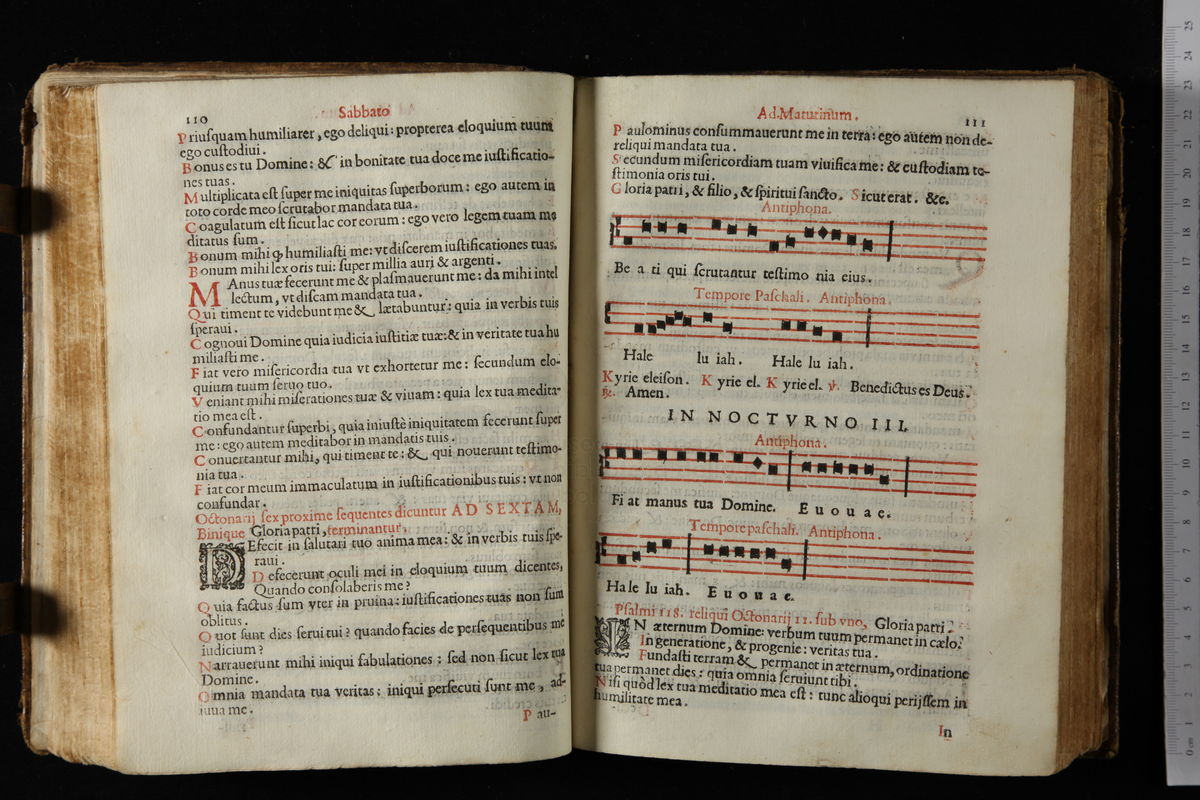 110
Sabbato
Priusquam humiliarer, ego deliqui: propterea eloquium tuum
ego custodiui.
Bonus es tu Domine: & in bonitate tua doce me iustificatio-
nes tuas.
Multiplicata est super me iniquitas superborum: ego autem in
toto corde meo scrutabor mandata tua.
Coagulatum est sicut lac cor eorum: ego vero legem tuam me
ditatus sum.
Bonum mihi ꝙ humiliasti me: vt discerem iustificationes tuas.
Bonum mihi lex oris tui: super millia auri & argenti.
MAnus tuæ fecerunt me & plasmauerunt me: da mihi intel
lectum, vt discam mandata tua.
Qui timent te videbunt me & lætabuntur: quia in verbis tuis
speraui.
Cognoui Domine quia iudicia iustitiæ tuæ:& in veritate tua hu
miliasti me.
Fiat vero misericordia tua vt exhortetur me: secundum elo-
quium tuum seruo tuo.
Veniant mihi miserationes tuæ & viuam: quia lex tua medita-
tio mea est.
Confundantur superbi, quia iniustè iniquitatem fecerunt super
me: ego autem meditabor in mandatis tuis.
Conuertantur mihi, qui timent te: & qui nouerunt testimo-
nia tua.
Fiat cor meum immaculatum in iustificationibus tuis: vt non
confundar.
Octonarij sex proxime sequentes dicuntur AD SEXTAM,
Binique Gloria patri, terminantur.
DEfecit in salutari tuo anima mea: & in verbis tuis spe-
raui.
Defecerunt oculi mei in eloquium tuum dicentes,
Quando consolaberis me?
Quia factus sum vter in pruina: iustificationes tuas non sum
oblitus.
Quot sunt dies serui tui? quando facies de persequentibus me
iudicium?
Narrauerunt mihi iniqui fabulationes: sed non sicut lex tua
Domine.
Omnia mandata tua veritas: iniqui persecuti sunt me, ad-
iuua me.
Pau-
Ad Maturinum.
111
Paulominus consummauerunt me in terra: ego autem non de-
reliqui mandata tua.
Secundum misericordiam tuam viuifica me: & custodiam te-
stimonia oris tui.
Gloria patri, & filio, & spiritui sancto. Sicut erat. &c.
Antiphona.
Be a ti qui scrutantur testimo nia eius.
Tempore Paschali. Antiphona.
Hale lu iah. Hale lu iah.
Kyrie eleison. Kyrie el. Kyrie el. ℣. Benedictus es Deus.
℟. Amen.
IN NOCTVRNO III.
Antiphona.
Fi at manus tua Domine. E u o u a e.
Tempore paschali. Antiphona.
Hale lu iah. E u o u a e.
Psalmi 118. reliqui Octonarij 11. sub vno, Gloria patri.
IN æternum Domine: verbum tuum permanet in cælo.
In generatione, & progenie: veritas tua.
Fundasti terram & permanet in æternum, ordinatione
tua permanet dies: quia omnia seruiunt tibi.
Nisi quòd lex tua meditatio mea est: tunc alioqui perijssem in
humilitate mea.
In